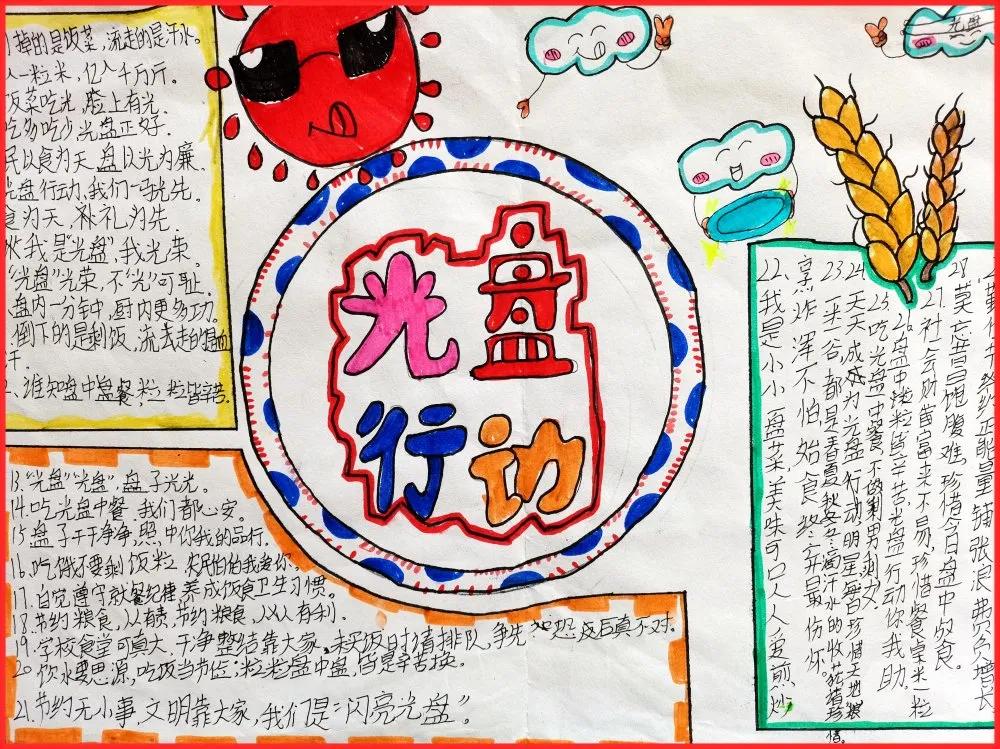 掉的是饭菜,流走的是汗水。
一粒米,亿入千万斤。
饭菜吃光,脸上有光.
吃多吃少光盘正好.
民以食为天盘以光为廉.
光盘行动,我们一马光先.
食为天,补礼为先.
我是"光盘"我光荣.
"光盘"光荣,不"光"可耻.
盘内一分钟,厨内更多功.
倒下的是剩饭,流去走的是血
汗
谁知盘中盘餐,粒粒皆辛苦.
光盘
光盘
行动
13."光盘""光盘",盘子光光。
14.吃光盘中餐 我们都心安。
15.盘子干干净净,照中你我的品行.
16.吃饿不要剩饭粒
17.自觉遵守就餐纪律养成饭食卫生习惯。
18.节约粮食,从有责.节约粮食,人从有利.
19.学校食堂可真大,干净整结靠大家.买饭时请排队,争先恐后真不对.
20.饮水要思源,吃饭当节俭;粒粒盘中盘,皆是辛苦换。
21.节约无小事,文明靠大家,我们是"闪亮光盘"。
22.我是小小盘菜美味可口人人爱煎炒
烹炸浑不怕
23.一米一谷都是春夏秋冬滴汗水的收获请珍惜。
24.天天成为光盘行动明星每日珍惜天地粮
25.吃光盘中餐不的剩男剩女.
26.盘中餐粒皆辛苦光盘行动你我助.
27.社会财富富来不易珍惜餐桌米一粒
28.莫忘昔日饱腹难珍惜今日盘中的食.
正能量铺张浪费负增长